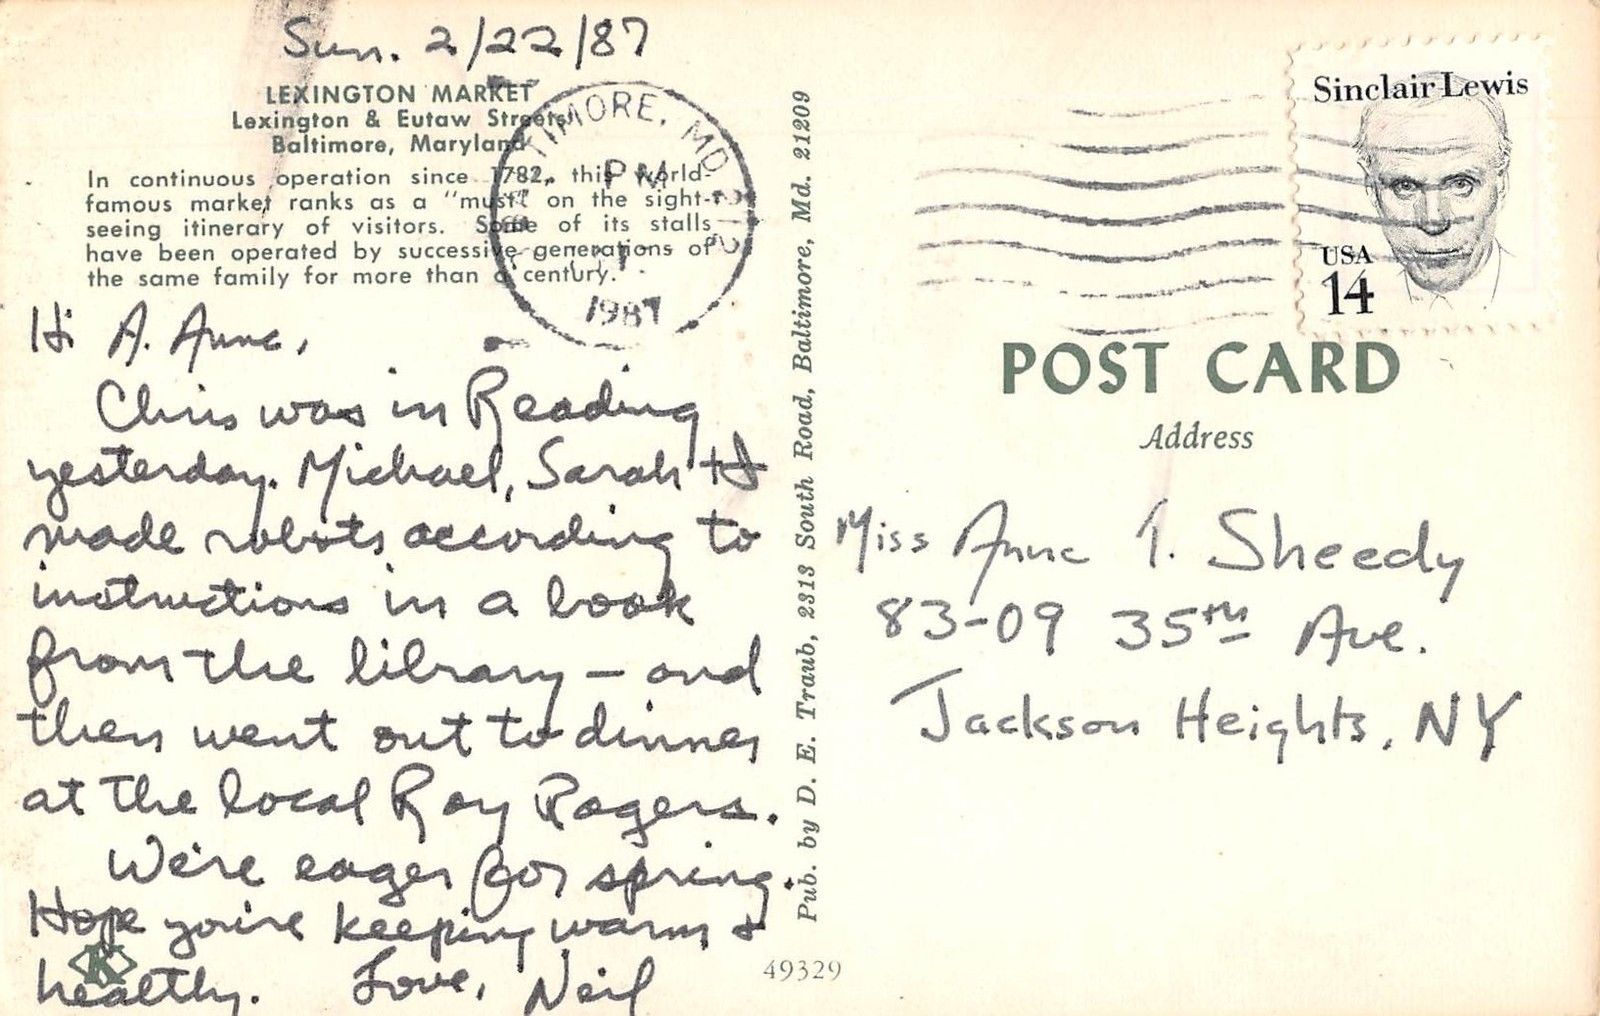 Sun. 2/22/87
LEXINGTON MARKET
Lexington & Eutaw Streets
Baltimore, Maryland
In continuous operation since 1782, this world-
famous market ranks as a "must" on the sight-
seeing itinerary of visitors. Some of its stalls
have been operated by successive generations of
the same family for more than a century.
TIMORE, MD 212
PM
1987
Hi A. Anne,
Chris was in Reading
yesterday. Michael, Sarah + I
made robots according to
instructions in a book
from the library – and
then went out to dinner
at the local Roy Rogers.
We're eager for spring.
Hope you're keeping warm &
healthy. Love, Neil
K
Pub. by D. E. Traub, 2313 South Road, Baltimore, Md. 21209
49329
Sinclair Lewis
USA
14
POST CARD
Address
Miss Anne T. Sheedy
83-09 35TH Ave.
Jackson Heights, NY